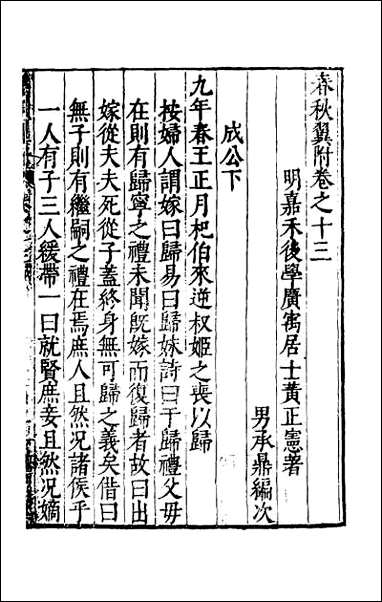 春秋翼附卷之十三
明嘉禾後學廣寓居士黃正憲著
男承鼎編次
成公下
九年春王正月杞伯來逆叔姬之喪以歸
按婦人謂嫁曰歸易曰歸妹詩曰于歸禮父毋
在則有歸寧之禮未聞旣嫁而復歸者故曰出
嫁從夫夫死從子蓋終身無可歸之義矣借曰
無子則有繼嗣之禮在焉庶人且然况諸侯乎
一人有子三人緩帶一曰就賢庶妾且然况嫡